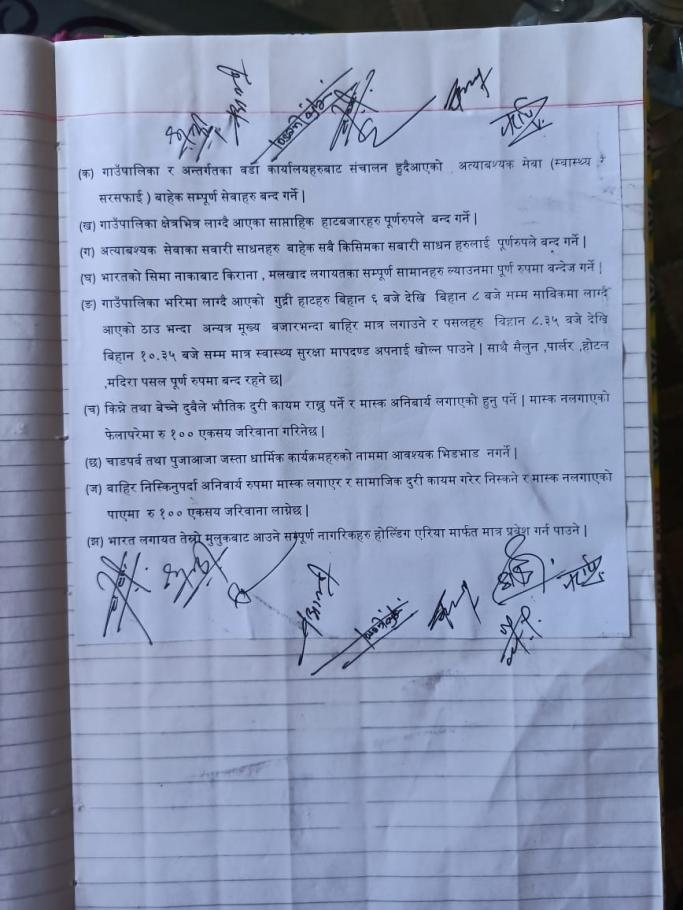 (क) गाउँपालिका र अन्तर्गतका वडा कार्यालयहरुबाट संचालन हुदैआएको अत्याबश्यक सेवा (स्वास्थ्य र
सरसफाई ) बाहेक सम्पूर्ण सेवाहरु बन्द गर्ने |
(ख) गाउँपालिका क्षेत्रभित्र लाग्दै आएका साप्ताहिक हाटबजारहरु पूर्णरुपले बन्द गर्ने |
(ग) अत्याबश्यक सेवाका सवारी साधनहरु बाहेक सबै किसिमका सबारी साधन हरुलाई पूर्णरुपले बन्द गर्ने |
(घ) भारतको सिमा नाकाबाट किराना , मलखाद लगायतका सम्पूर्ण सामानहरु ल्याउनमा पूर्ण रुपमा बन्देज गर्ने |
(ङ) गाउँपालिका भरिमा लाग्दै आएको गुद्री हाटहरु बिहान ६ बजे देखि बिहान ८ बजे सम्म साबिकमा लाग्दै
आएको ठाउ भन्दा अन्यत्र मूख्य बजारभन्दा बाहिर मात्र लगाउने र पसलहरु बिहान ८.३५ बजे देखि
बिहान १०.३५ बजे सम्म मात्र स्वास्थ्य सुरक्षा मापदण्ड अपनाई खोल्न पाउने | साथै सैलुन ,पार्लर ,होटल
,मदिरा पसल पूर्ण रुपमा बन्द रहने छ|
(च) किन्ने तथा बेच्ने दुबैले भौतिक दुरी कायम राख्नु पर्ने र मास्क अनिबार्य लगाएको हुनु पर्ने | मास्क नलगाएको
फेलापरेमा रु १०० एकसय जरिवाना गरिनेछ |
(छ) चाडपर्व तथा पुजाआजा जस्ता धार्मिक कार्यक्रमहरुको नाममा आवश्यक भिडभाड नगर्ने |
(ज) बाहिर निस्किनुपर्दा अनिवार्य रुपमा मास्क लगाएर र सामाजिक दुरी कायम गरेर निस्कने र मास्क नलगाएको
पाएमा रु १०० एकसय जरिवाना लाग्नेछ |
(झ) भारत लगायत तेस्रो मुलुकबाट आउने सम्पूर्ण नागरिकहरु होल्डिंग एरिया मार्फत मात्र प्रवेश गर्न पाउने |